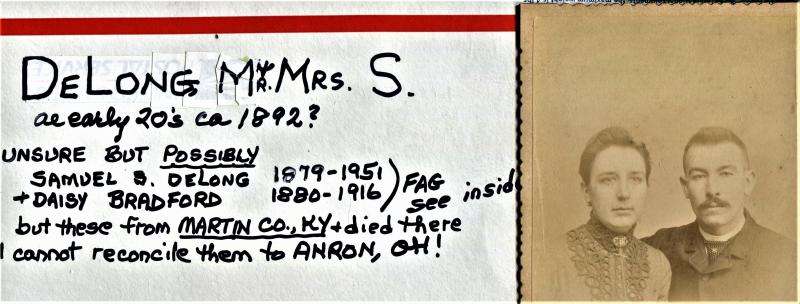 DeLong Mr. & Mrs. S.
ae early 20's ca 1892?
UNSURE BUT POSSIBLY
SAMUEL B. DELONG 1879-1951
+ DAISY BRADFORD 1880-1916 ) FAG see inside
but these from MARTIN CO., KY + died there
I cannot reconcile them to ANRON, OH!